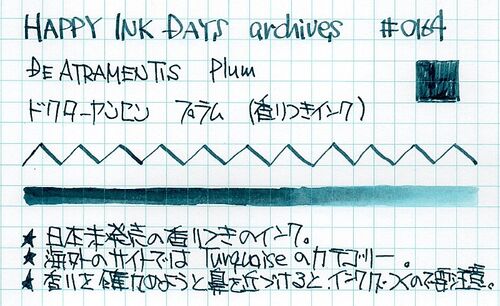 HAPPY INK DAYS archives #0164
DE ATRAMENTIS Plum
ドクターヤンセン プラム (香りつきインク)
★ 日本未発売の香りつきのインク。
★ 海外のサイトでは Turquoiseのカテゴリー。
★ 香りを確かめようと鼻を近づけるとインクがつくので要注意。